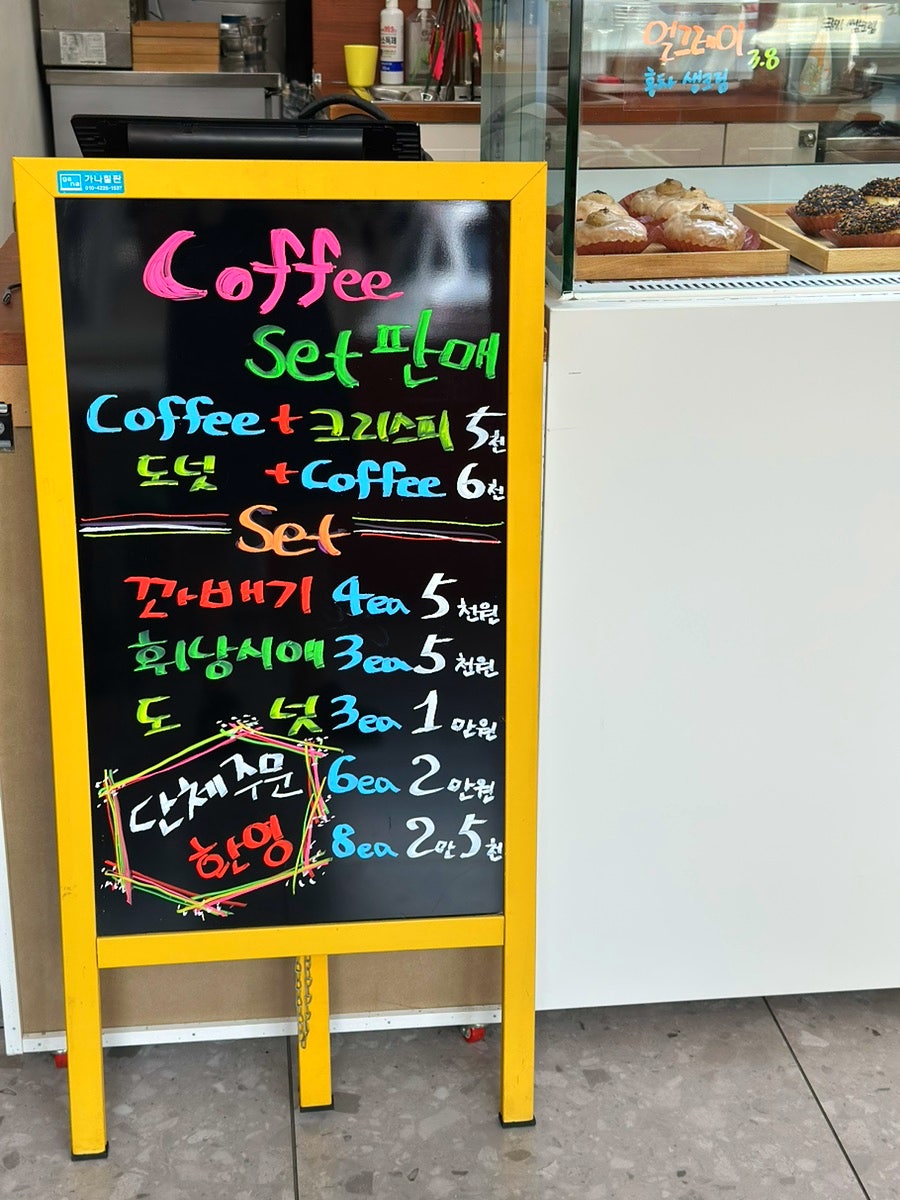 얼그레이 3.8
홍차 생크림
가나칠판
Coffee
Set 판매
Coffee + 크리스피 5천
도넛 + Coffee 6천
Set
꽈배기 4ea 5천원
휘낭시에 3ea 5천원
도넛 3ea 1만원
6ea 2만원
8ea 2만5천
단체주문
환영